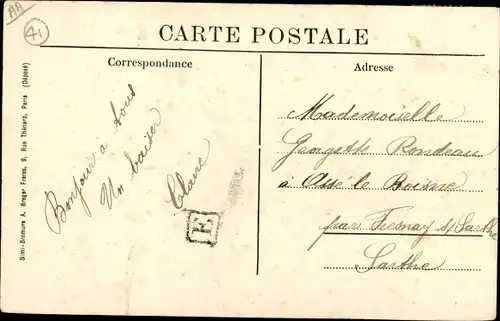 AA
41
CARTE POSTALE
Correspondance
Adresse
Bonjour à tous
Un baiser
Claire
E
Mademoiselle
Georgette Rondeau
à Assé le Boisne
par Fresnay s/Sarthe
Sarthe
Simi-Bromure A. Breger Frères, 9, Rue Thénard, Paris (Déposé)